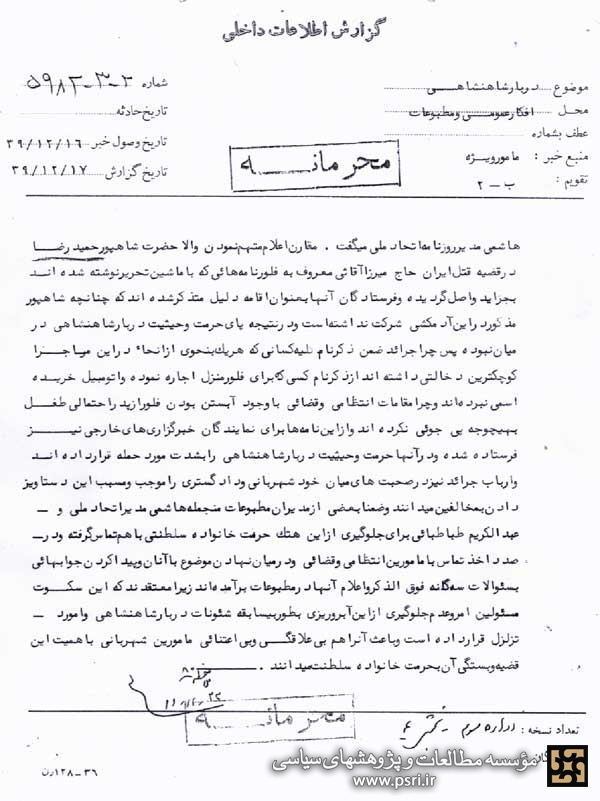 گزارش اطلاعات داخلی
موضوع دربار شاهنشاهی
محل افکار عمومی و مطبوعات
عطف بشماره
منبع خبر : مامور ویژه
تقویم : ب - ۲
شماره ۵۹۸۲-۳-۲
تاریخ حادثه
تاریخ وصول خبر ۳۹/۱۲/۱۶
تاریخ گزارش ۳۹/۱۲/۱۷
محرمانه
هاشمی مدیر روزنامه اتحاد ملی میگفت . مقارن اعلام متهم نمودن والا حضرت شاهپور حمید رضا
در قضیه قتل ایران حاج میرزا آقائی معروف به فلور نامه هائی که با ماشین تحریر نوشته شده اند
بجراید واصل گردیده و فرستادگان آنها بعنوان اقامه دلیل متذکر شده اند که چنانچه شاهپور
مذکور در این آدمکشی شرکت نداشته است و در نتیجه پای حرمت و حیثیت دربار شاهنشاهی در
میان نبوده پس چرا جرائد ضمن ذکر نام کلیه کسانی که هریک بنحوی از انحاء در این ماجرا
کوچکترین دخالتی داشته اند از ذکر نام کسی که برای فلور منزل اجاره نموده و اتومبیل خریده
اسمی نبرده اند و چرا مقامات انتظامی و قضائی با وجود آبستن بودن فلور از پدر احتمالی طفل
بهیچوجه پی جوئی نکرده اند و از این نامه ها برای نمایندگان خبرگزاری های خارجی نیز
فرستاده شده و در آنها حرمت و حیثیت دربار شاهنشاهی را بشدت مورد حمله قرار داده اند
و ارباب جرائد نیز در صحبت های میان خود شهربانی و دادگستری را موجب و مسبب این دستاویز
دادن بمخالفین میدانند و ضمنا بعضی از مدیران مطبوعات منجمله هاشمی مدیر اتحاد ملی و -
عبدالکریم طباطبائی برای جلوگیری از این هتک حرمت خانواده سلطنتی با هم تماس گرفته و در -
صدد اخذ تماس با مامورین انتظامی و قضائی و در میان نهادن موضوع با آنان و پیدا کردن جوابهائی
بسئوالات سه گانه فوق الذکر و اعلام آنها در مطبوعات برآمده اند زیرا معتقدند که این سکوت
مسئولین امر و عدم جلوگیری از این آبروریزی بطور بیسابقه شئونات دربار شاهنشاهی را مورد -
تزلزل قرار داده است و باعث آنرا هم بی علاقگی و بی اعتنائی مامورین شهربانی با همیت این
قضیه و بستگی آن بحرمت خانواده سلطنت میدانند .
محرمانه
تعداد نسخه : اداره سوم
گان
۳۶-۱۲۸رن
مؤسسه مطالعات و پژوهشهای سیاسی
www.psri.ir